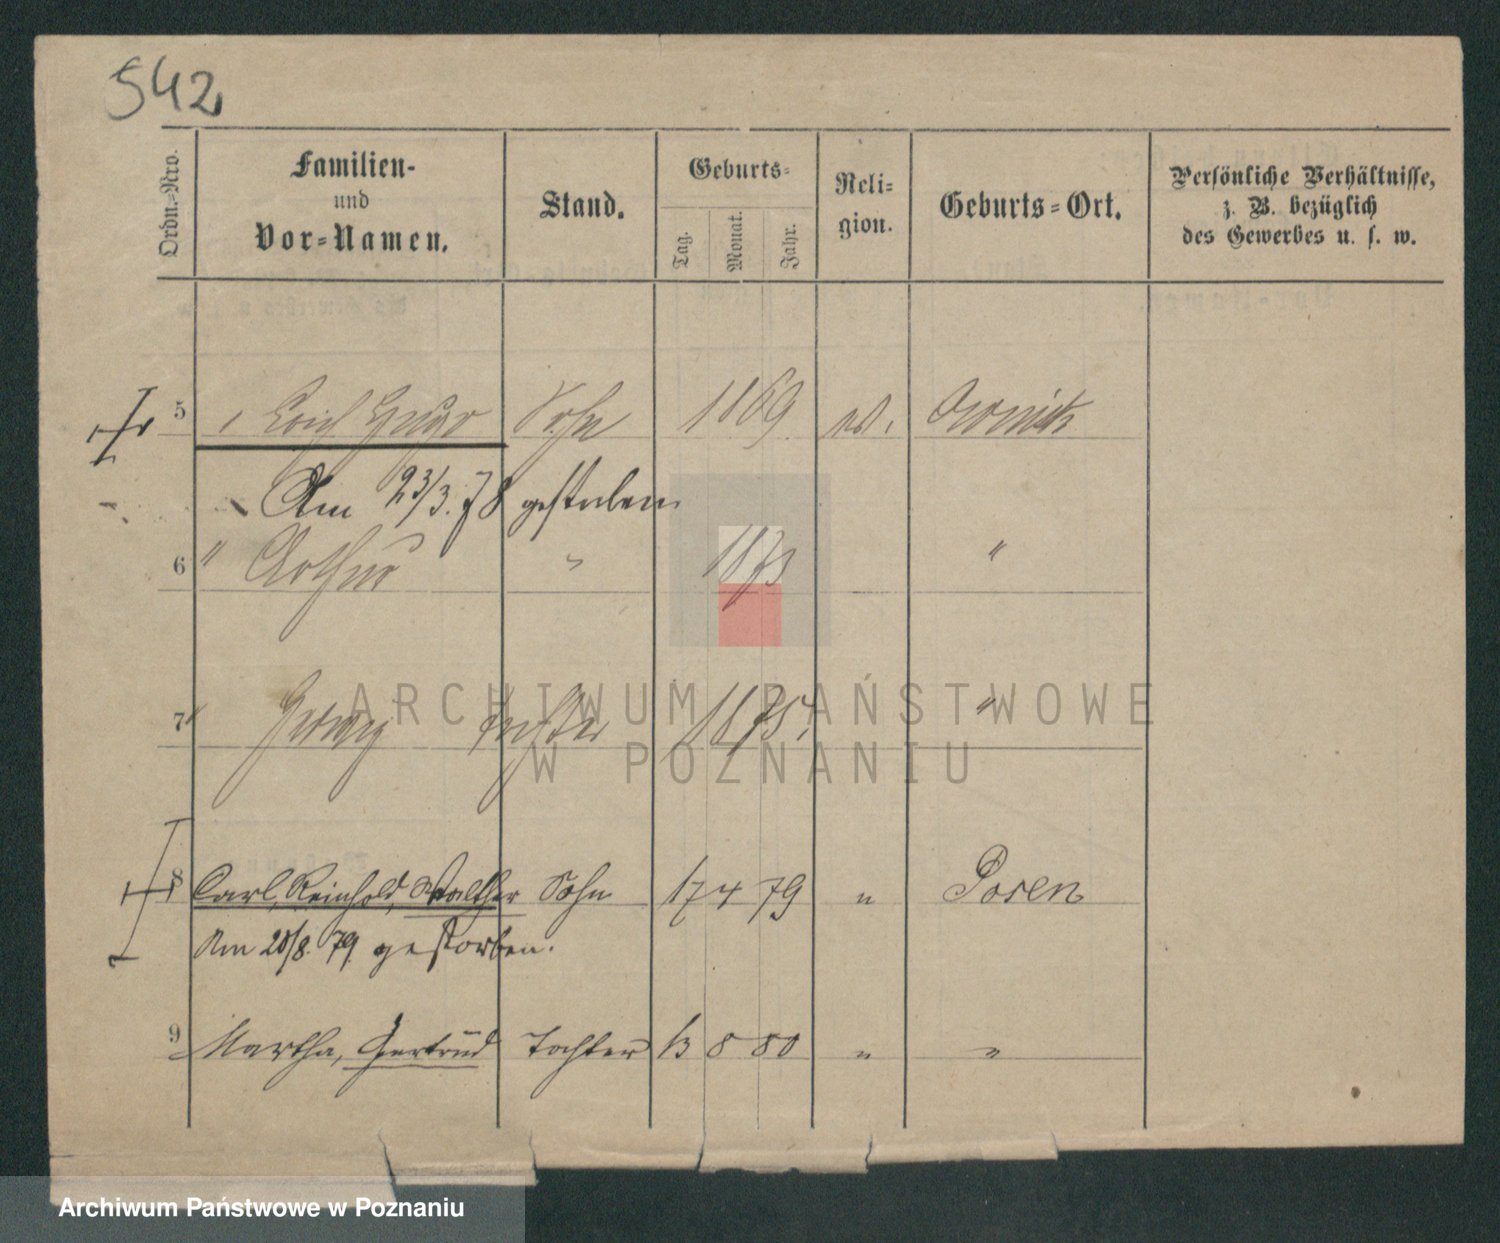 542
Ordn.-Nro.
Familien-
und
Vor-Namen.
Stand.
Geburts-
Tag.
Monat.
Jahr.
Reli-
gion.
Geburts-Ort.
Persönliche Verhältnisse,
z. B. bezüglich
des Gewerbes u. s. w.
5 Erich Hugo Sohn 1869
Am 23/3. 78 gestorben
6 " Arthur " 1873 "
7 Hedwig Tochter 1875. "
8 Carl, Reinhold, Walther Sohn 17 4 79 " Posen
Am 20/8. 79. gestorben.
9 Martha, Gertrud Tochter 13 8 80 " "
ARCHIWUM PAŃSTWOWE
W POZNANIU
Archiwum Państwowe w Poznaniu